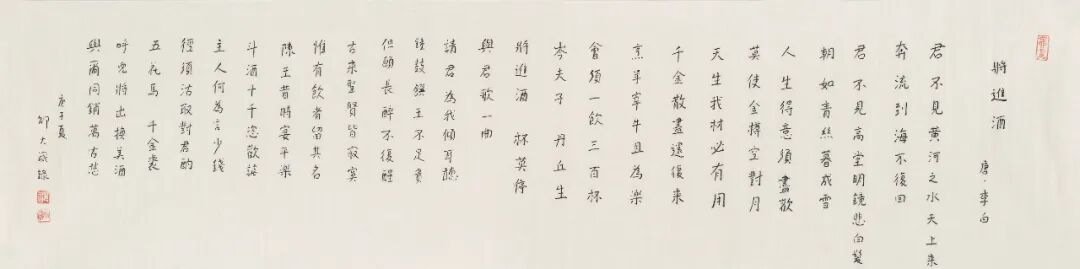 將進酒
唐·李白
君不見黄河之水天上来
奔流到海不復回
君不見高堂明鏡悲白髮
朝如青絲暮成雪
人生得意須盡歡
莫使金樽空對月
天生我材必有用
千金散盡還復来
烹羊宰牛且為樂
會須一飲三百杯
岑夫子 丹丘生
將進酒 杯莫停
與君歌一曲
請君為我傾耳聽
鐘鼓饌玉不足貴
但願長醉不復醒
古来聖賢皆寂寞
惟有飲者留其名
陳王昔時宴平樂
斗酒十千恣歡謔
主人何為言少錢
徑須沽取對君酌
五花馬 千金裘
呼兒將出換美酒
與爾同銷萬古愁
庚子夏
邵大箴錄